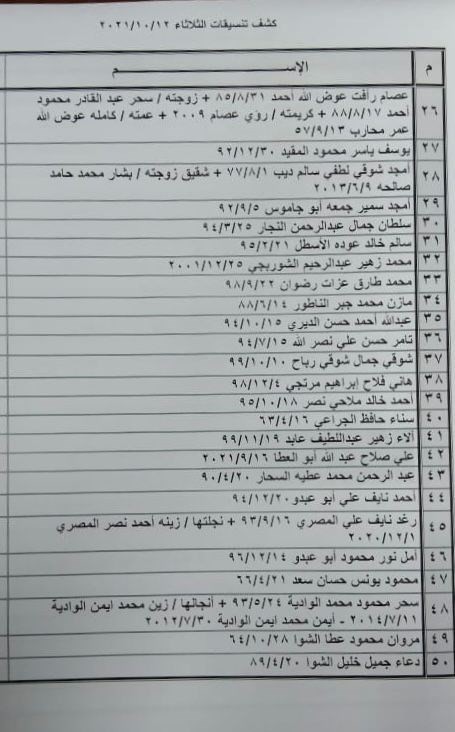 كشف تنسيقات الثلاثاء ٢٠٢١/١٠/١٢
م الإســـــــم
٢٦ عصام رافت عوض الله أحمد ٨٥/٨/٣١ + زوجته / سحر عبد القادر محمود
أحمد ٨٨/٨/١٧ + كريمته / رؤي عصام ٢٠٠٩ + عمته / كامله عوض الله
عمر محارب ٥٧/٩/١٣
٢٧ يوسف ياسر محمود المقيد ٩٢/١٢/٣٠
٢٨ أمجد شوقي لطفي سالم ديب ٧٧/٨/١ + شقيق زوجته / بشار محمد حامد
صالحه ٢٠١٣/٦/٩
٢٩ أمجد سمير جمعه أبو جاموس ٩٢/٩/٥
٣٠ سلطان جمال عبدالرحمن النجار ٩٤/٣/٢٥
٣١ سالم خالد عوده الأسطل ٩٥/٢/٢١
٣٢ محمد زهير عبدالرحيم الشوربجي ٢٠٠١/١٢/٢٥
٣٣ محمد طارق عزات رضوان ٩٨/٩/٢٢
٣٤ مازن محمد جبر الناطور ٨٨/٦/١٤
٣٥ عبدالله أحمد حسن الديري ٩٤/١٠/١٥
٣٦ تامر حسن علي نصر الله ٩٤/٧/١٥
٣٧ شوقي جمال شوقي رباح ٩٩/١٠/١٠
٣٨ هاني فلاح إبراهيم مرتجي ٩٨/١٢/٤
٣٩ أحمد خالد ملاحي نصر ٩٥/١٠/١٨
٤٠ سناء حافظ الجراعي ٦٣/٤/١٦
٤١ ألاء زهير عبداللطيف عابد ٩٩/١١/١٩
٤٢ علي صلاح عبد الله أبو العطا ٢٠٢١/٩/١٦
٤٣ عبد الرحمن محمد عطيه السحار ٩٠/٤/٢٠
٤٤ أحمد نايف علي أبو عبدو ٩٤/١٢/٢٠
٤٥ رغد نايف علي المصري ٩٣/٩/١٦ + نجلتها / زينه أحمد نصر المصري
٢٠٢٠/١٢/١
٤٦ أمل نور محمود أبو عبدو ٩٦/١٢/١٤
٤٧ محمود يونس حسان سعد ٦٦/٤/٢١
٤٨ سحر محمود محمد الوادية ٩٣/٥/٢٤ + أنجالها / زين محمد ايمن الوادية
٢٠١٤/٧/١١ - أيمن محمد ايمن الوادية ٢٠١٢/٧/٣٠
٤٩ مروان محمود عطا الشوا ٦٤/١٠/٢٨
٥٠ دعاء جميل خليل الشوا ٨٩/٤/٢٠